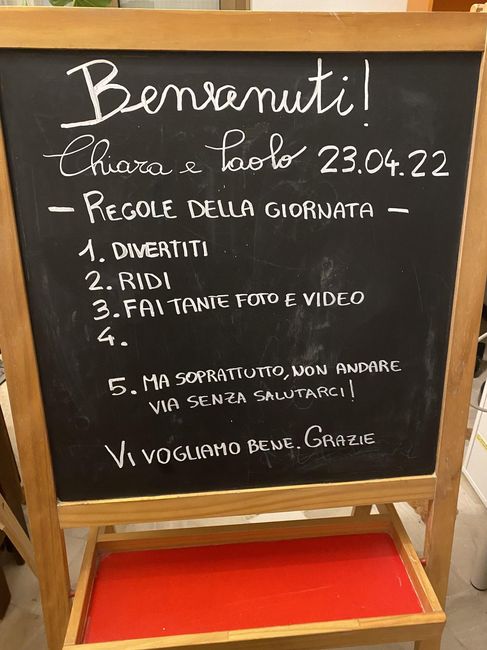 Benvenuti!
Chiara e Paolo 23.04.22
- REGOLE DELLA GIORNATA -
1. DIVERTITI
2. RIDI
3. FAI TANTE FOTO E VIDEO
4.
5. MA SOPRATTUTTO, NON ANDARE
VIA SENZA SALUTARCI!
VI VOGLIAMO BENE. GRAZIE